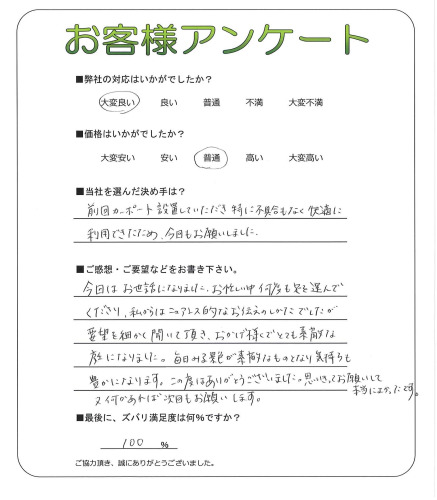 お客様アンケート
■弊社の対応はいかがでしたか？
大変良い 良い 普通 不満 大変不満
■価格はいかがでしたか？
大変安い 安い 普通 高い 大変高い
■当社を選んだ決め手は？
前回カーポート設置していただき特に不具合もなく快適に
利用できたため、今回もお願いしました.
■ご感想・ご要望などをお書き下さい。
今回はお世話になりました. お忙しい中何度も足を運んで
くださり、私からはニュアンス的なお伝えのしかたでしたが
要望を細かく聞いて頂き、おかげ様でとても素敵な
庭になりました。毎日みる景色が素敵なものとなり気持ちも
豊かになります。この度はありがとうございました。思いきってお願いして
本当によかったです。
又何かあれば次回もお願いします。
■最後に、ズバリ満足度は何％ですか？
100 ％
ご協力頂き、誠にありがとうございました。